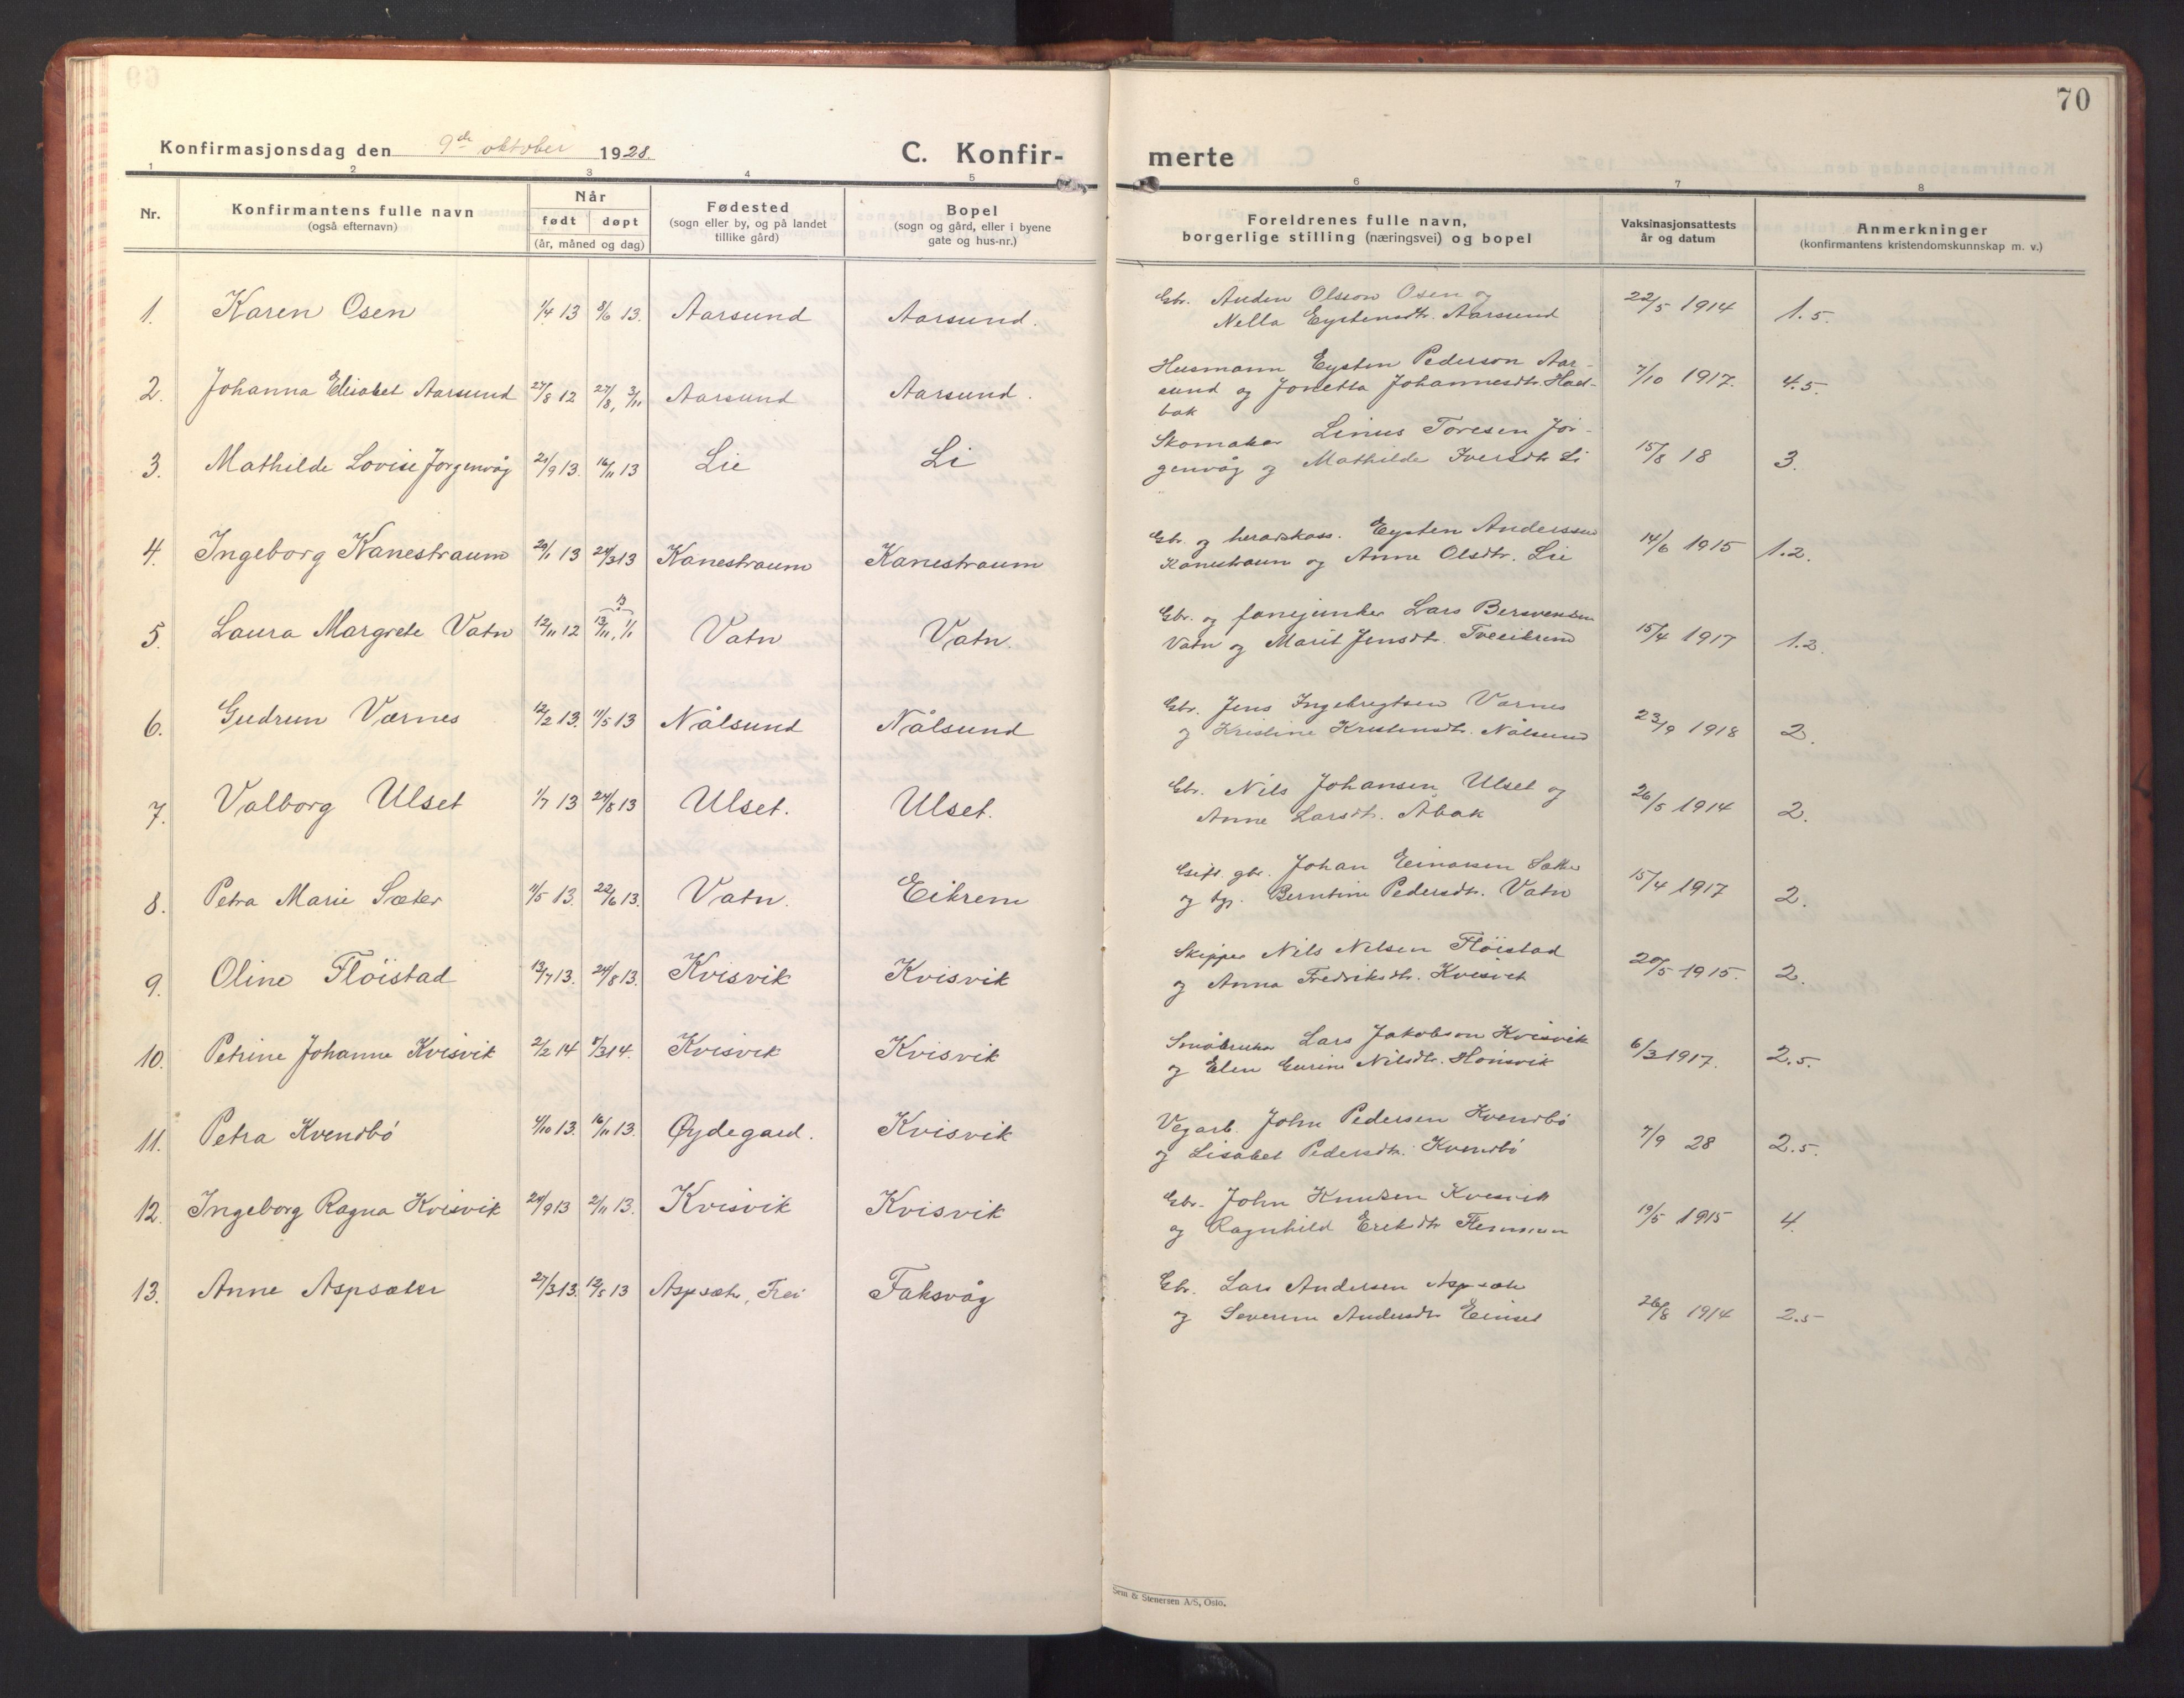 70
Konfirmasjonsdag den 9de oktober 1928.
C. Konfirmerte
1 2 3 4 5 6 7 8
Nr.
Konfirmantens fulle navn
(også efternavn)
Når
født døpt
(år, måned og dag)
Fødested
(sogn eller by, og på landet
tillike gård)
Bopel
(sogn og gård, eller i byene
gate og hus-nr.)
Foreldrenes fulle navn,
borgerlige stilling (næringsvei) og bopel
Vaksinasjonsattests
år og datum
Anmerkninger
(konfirmantens kristendomskunnskap m. v.)
1. Karen Osen 1/4 13 8/6 13. Aarsund Aarsund. Gbr. Anden Olsson Osen og 22/5 1914 1.5.
Nella Eystensdtr. Aarsund
2. Johanna Elisabet Aarsund 27/8 12 27/8, 3/11 Aarsund Aarsund. Husmann Eysten Pederson Aar- 7/10 1917. 4.5.
sund og Jonetta Johannesdtr.
bak
3. Mathilde Lovise Jørgenvåg 21/9 13. 16/11 13 Lie Li Skomaker Linus Toresen Jør- 15/8 18 3.
genvåg og Mathilde Iversdtr. Li
4. Ingeborg Kanestraum 20/1 13 24/3 13 Kanestraum Kanestraum Gbr. og heradskass. Eysten Anderssen 14/6 1915 1.2.
Kanestraum og Anne Olsdtr. Lie
5. Laura Margrete Vatn 12/11 12 13/11, 1/1 13 Vatn Vatn. Gbr. og fanejunker Lars Bersvendsen 15/4 1917 1.2.
Vatn og Marit Jensdtr. Tveeikrem
6. Gudrun Værnes 12/2 13. 11/5 13 Nålsund Nålsund Gbr. Jens Ingebregtsen Værnes 23/9 1918 2.
og Kristine Kristensdtr. Nålsund
7. Valborg Ulset 1/7 13 24/8 13 Ulset. Ulset. Gbr. Nils Johansen Ulset og 26/5 1914 2.
Anne Larsdtr. Åbak
8. Petra Marie Sæter 11/5 13. 22/6 13. Vatn. Eikrem Gift. gbr. Johan Einarsen Sæther 15/4 1917 2.
og tjp. Berntine Pedersdtr. Vatn
9. Oline Flöistad 13/7 13. 24/8 13. Kvisvik Kvisvik Skipper Nils Nilsen Flöistad 20/5 1915. 2.
og Anna Fredriksdtr. Kvisvik
10. Petrine Johanne Kvisvik 2/2 14 8/3 14. Kvisvik Kvisvik Småbruker Lars Jakobson Kvisvik 6/3 1917. 2.5.
og Elen Gurine Nilsdtr. Honsvik
11. Petra Kvendbö 4/10 13. 16/11 13. Øydegard. Kvisvik Vegarb. John Pedersen Kvendbö 7/9 28 2.5.
og Lisabet Pedersdtr. Kvendbö
12. Ingeborg Ragna Kvisvik 24/9 13 2/11 13. Kvisvik Kvisvik Gbr. John Knudsen Kvisvik 19/5 1915 4.
og Ragnhild Eriksdtr. Flemmen
13. Anne Aspsæter 27/3 13. 12/5 13 Aspsæter, Frei Faksvåg Gbr. Lars Andersen Aspsæter 26/8 1914 2.5
og Severine Andersdtr. Einset
Sem & Stenersen A/S, Oslo.